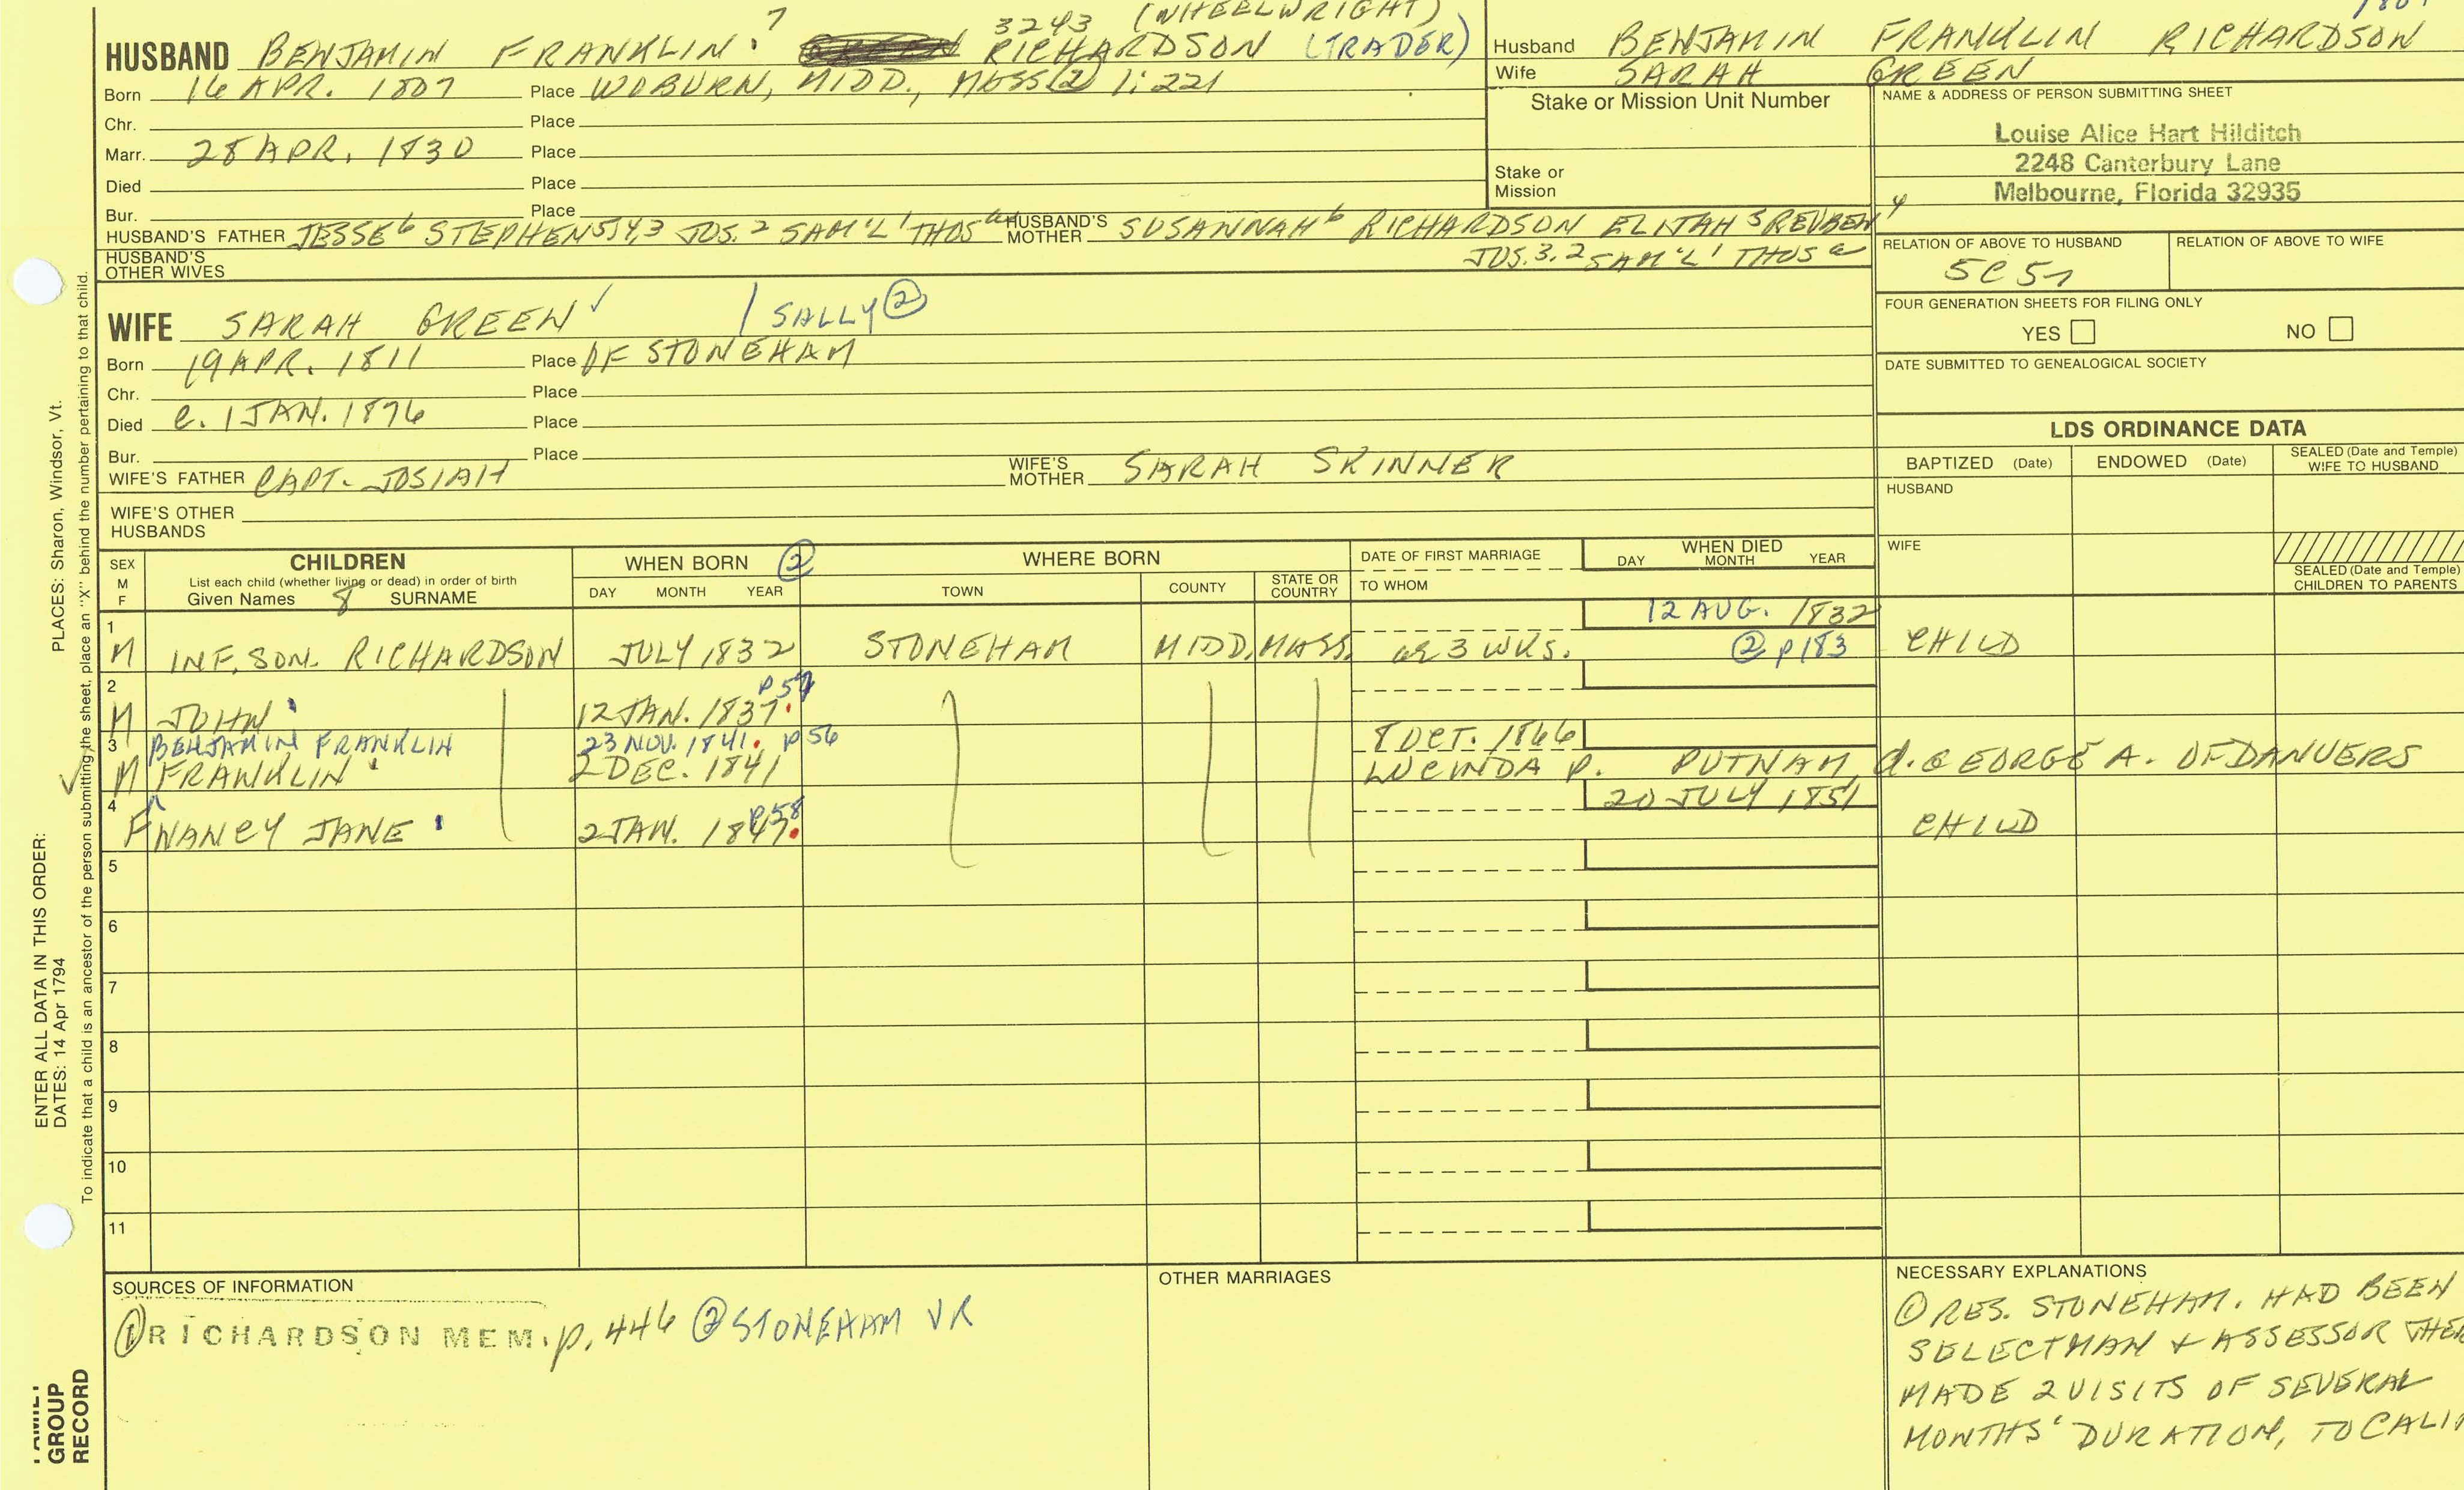 HUSBAND BENJAMIN FRANKLIN 7 3243 RICHARDSON (WHEELWRIGHT) (TRADER)
Born 16 APR. 1807 Place WOBURN, MIDD., MASS ② 1:221
Chr. Place
Marr. 28 APR. 1830 Place
Died Place
Bur. Place
HUSBAND'S FATHER JESSE 6 STEPHEN 5,4,3 JOS. 2 SAM'L 1 THOS a HUSBAND'S MOTHER SUSANNAH 6 RICHARDSON ELIJAH 5 REUBEN 4
JOS. 3, 2 SAM'L 1 THOS a
HUSBAND'S OTHER WIVES
Husband BENJAMIN FRANKLIN RICHARDSON
Wife SARAH GREEN
Stake or Mission Unit Number
Stake or Mission
NAME & ADDRESS OF PERSON SUBMITTING SHEET
Louise Alice Hart Hilditch
2248 Canterbury Lane
Melbourne, Florida 32935
RELATION OF ABOVE TO HUSBAND RELATION OF ABOVE TO WIFE
FOUR GENERATION SHEETS FOR FILING ONLY
YES NO
DATE SUBMITTED TO GENEALOGICAL SOCIETY
WIFE SARAH GREEN ✓ / SALLY ②
Born 19 APR. 1811 Place OF STONEHAM
Chr. Place
Died c. 1 JAN. 1876 Place
Bur. Place
WIFE'S FATHER CAPT. JOSIAH WIFE'S MOTHER SARAH SKINNER
WIFE'S OTHER HUSBANDS
LDS ORDINANCE DATA
BAPTIZED (Date) ENDOWED (Date) SEALED (Date and Temple) WIFE TO HUSBAND
HUSBAND
WIFE
SEALED (Date and Temple) CHILDREN TO PARENTS
SEX M F
CHILDREN
List each child (whether living or dead) in order of birth
Given Names 8 SURNAME
WHEN BORN ②
DAY MONTH YEAR
WHERE BORN
TOWN COUNTY STATE OR COUNTRY
DATE OF FIRST MARRIAGE
TO WHOM
WHEN DIED
DAY MONTH YEAR
1 M INF. SON. RICHARDSON JULY 1832 STONEHAM MIDD. MASS. ae 3 WKS. 12 AUG. 1832 ② p183 CHILD
2 M JOHN 12 JAN. 1837. p57
3 BENJAMIN FRANKLIN 23 NOV. 1841. p56 8 OCT. 1866
✓ M FRANKLIN 2 DEC. 1841 LUCINDA P. PUTNAM, d. GEORGE A. OF DANVERS
4 F NANCY JANE 2 JAN. 1847. p58 20 JULY 1851 CHILD
5
6
7
8
9
10
11
SOURCES OF INFORMATION
① RICHARDSON MEM. p. 446 ② STONEHAM VR
OTHER MARRIAGES
NECESSARY EXPLANATIONS
① RES. STONEHAM. HAD BEEN
SELECTMAN & ASSESSOR THE
MADE 2 VISITS OF SEVERAL
MONTHS' DURATION, TO CALI
ENTER ALL DATA IN THIS ORDER:
DATES: 14 Apr 1794 PLACES: Sharon, Windsor, Vt.
To indicate that a child is an ancestor of the person submitting the sheet, place an "X" behind the number pertaining to that child.
GROUP
RECORD